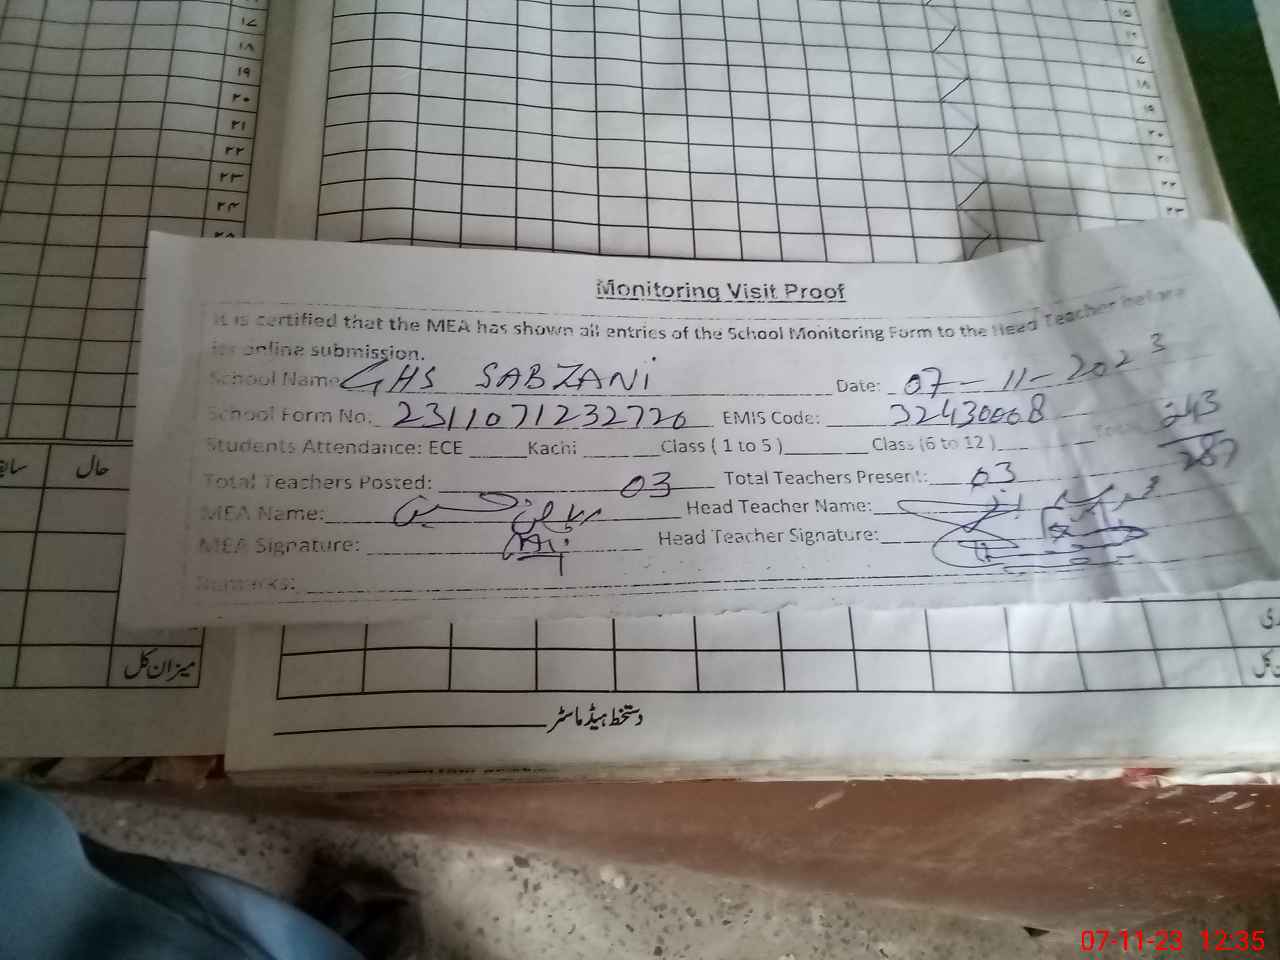 ۱۷
۱۸
۱۹
۲۰
۲۱
۲۲
۲۳
۲۴
۲۵
۱۵
۱۶
۱۷
۱۸
۱۹
۲۰
۲۱
۲۲
۲۳
Monitoring Visit Proof
It is certified that the MEA has shown all entries of the School Monitoring Form to the Head Teacher before
its online submission.
School Name GHS SABZANI Date: 07-11-2023
School Form No. 2311071232720 EMIS Code: 32430008
Students Attendance: ECE ______ Kachi ______ Class ( 1 to 5 )________ Class (6 to 12 )________ Total 243
287
Total Teachers Posted: 03 Total Teachers Present: 03
MEA Name: Head Teacher Name:
MEA Signature: Head Teacher Signature:
Remarks:
حال
میزان کل
دستخط ہیڈ ماسٹر
07-11-23 12:35